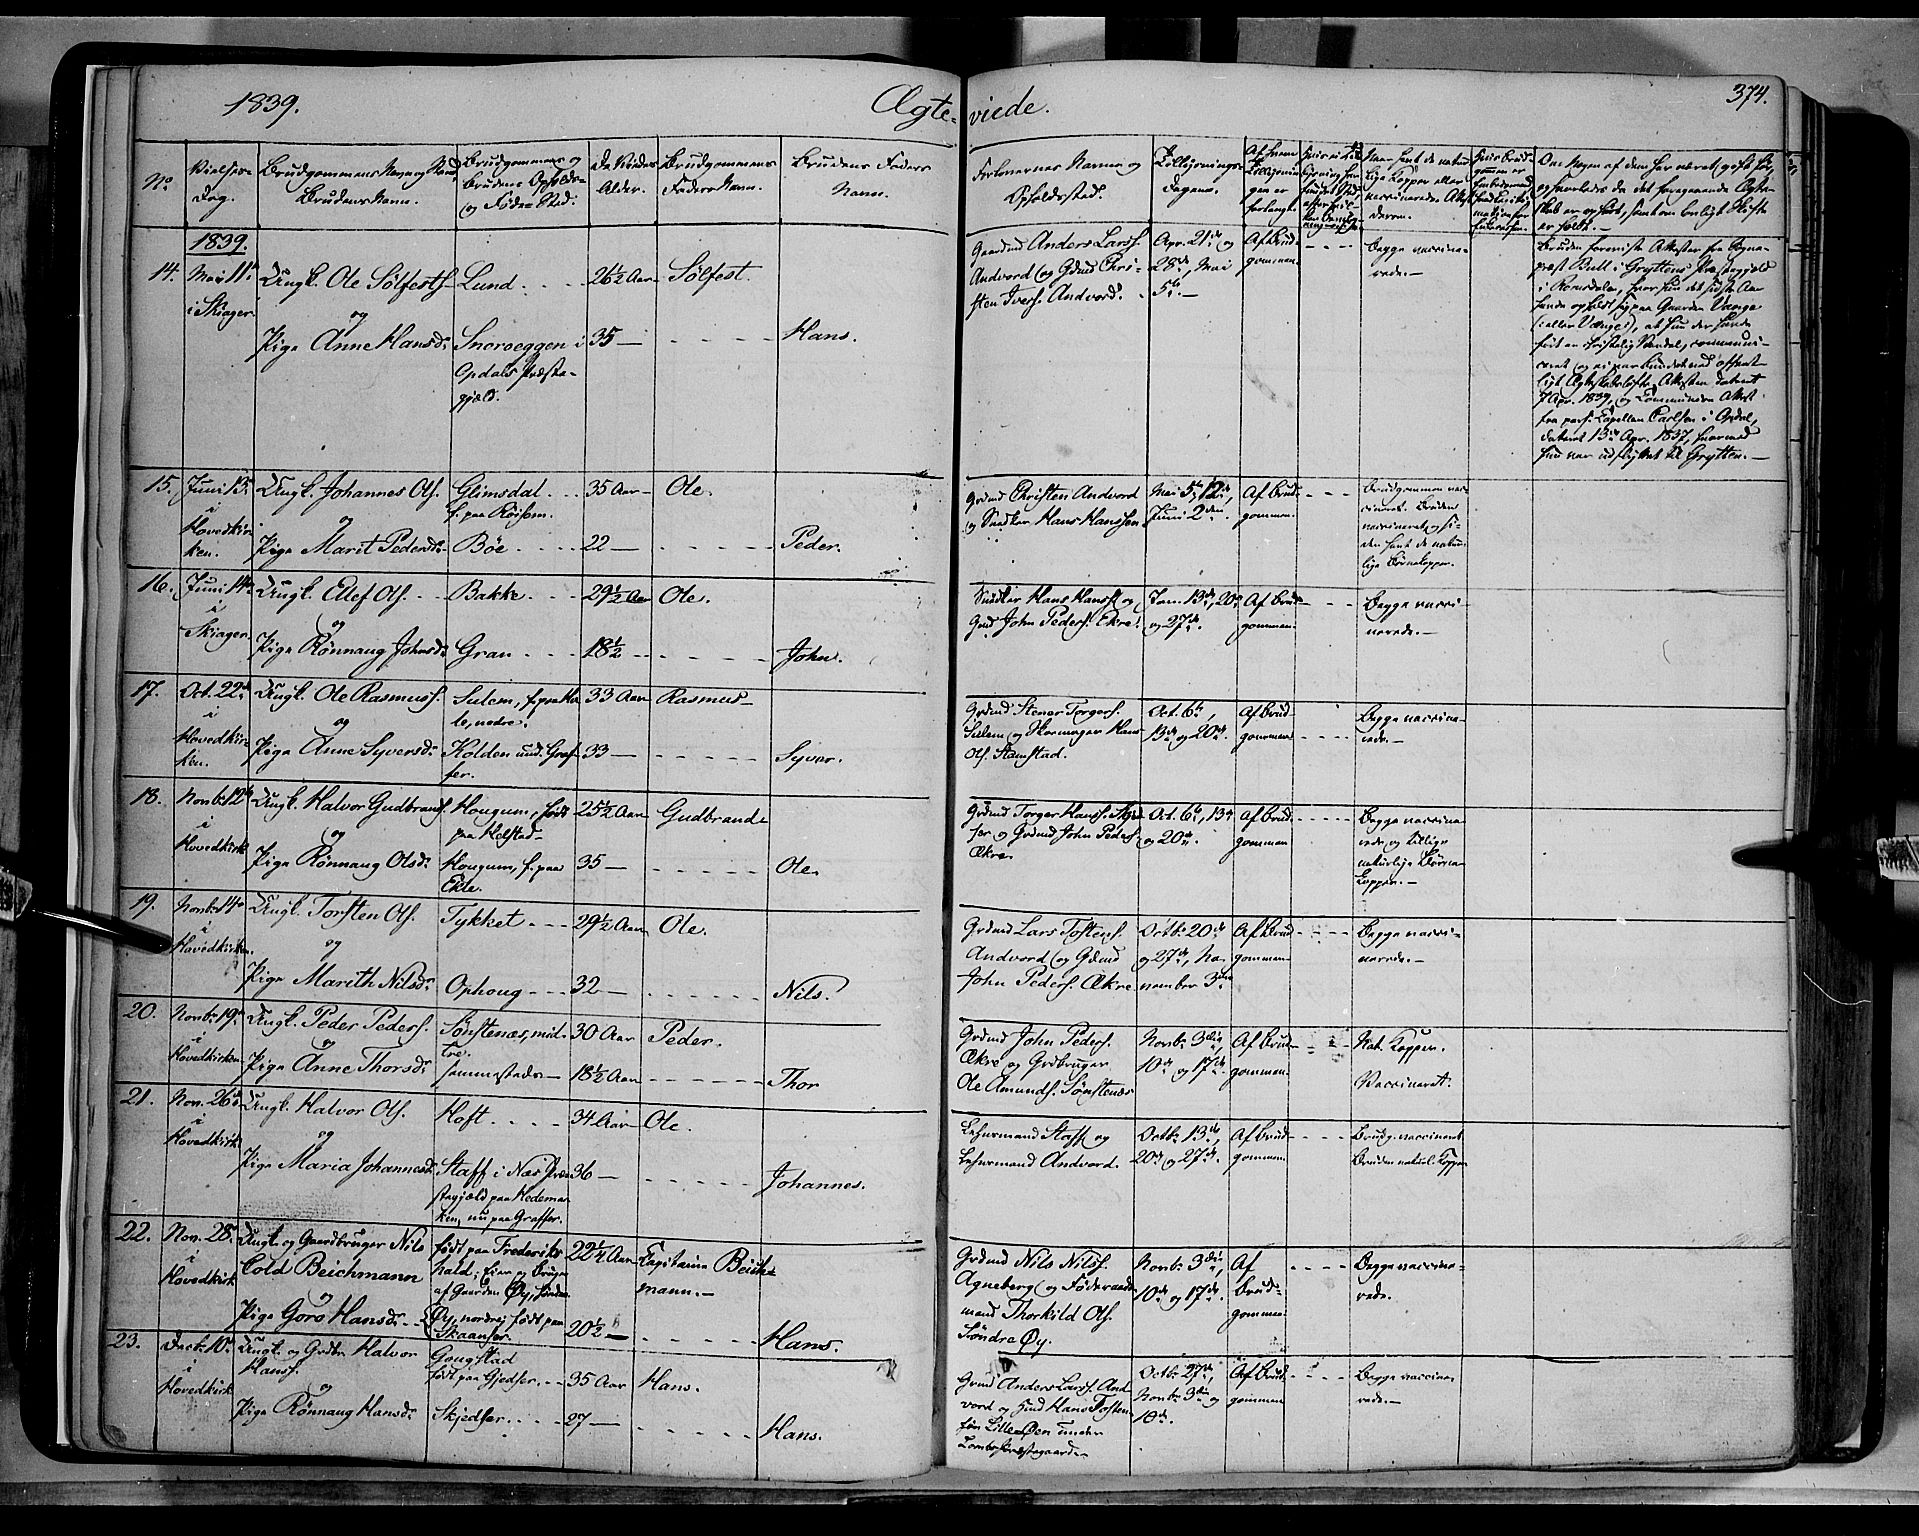 1839.
Ægte-
viede.
374.
No.
Vielses-
Dag.
Brudgommens Navn og Stand
Brudens Navn.
Brudgommens og
Brudens Opholds-
og Føde-Sted.
De Viedes
Alder.
Brudgommens
Faders Navn.
Brudens Faders
Navn.
Forlovernes Navne og
Opholdssted.
Tillysnings-
Dagene.
Af hvem
Tillysnin-
gen er
forlangt.
Om Nogen af dem har været gift før,
og hvorledes det foregaaende Ægte-
skab er ophørt, samt om lovligt Skifte
er holdt. —
1839.
14.
Mai 11te
i Skiager.
Ungk. Ole Sølfests.
og
Pige Anne Hansd:
Lund. - - -
Snoroeggen i
Opdals Præste-
gjæld.
26½ Aar
35 —
Sølfest.
Hans.
Gaardmd Anders Larss.
Andvord og Gdmd Chri-
sten Ivers. Andvord.
Apr. 21de og
28de, Mai
5te. —
Af Brud-
gommen.
Begge vacci-
nerede. —
Bruden foreviste Attester fra Sogne-
præst Bull i Gryttens Præstegjeld
i Romsdalen, hvor hun det sidste Aar
havde opholdt sig paa Gaarden Vænge
(eller Vænges), at hun der havde
ført en christelig Vandel, communi-
ceret og ei var bunden ved offent-
ligt Ægteskabsløfte, Attesten dateret
7 Apr. 1839, og Communion Attest
fra pers. Capellan Carlsen i Opdal,
dateret 13de Apr. 1837, hvorved
hun var udflyttet til Grytten. —
15.
Juni 13de
i
Hovedkir-
ken.
Ungk. Johannes Ols.
og
Pige Marit Pedersd:
Glimsdal. - - -
f. paa Røisem.
Bøe - - - -
35 Aar
22 —
Ole.
Peder.
Grdmd Christen Andvord
og Snedker Hans Hanssen
Mai 5te, 12te,
Juni 2den.
Af Brud-
gommen.
Brudgommen vac-
cineret. Bruden
vaccineret og si-
den havt de natur-
lige Børnekopper.
16.
Juni 14de
i
Skiager.
Ungk. Ellef Ols. - -
og
Pige Rønnaug Johnsd:
Bakke. - - -
Gran - - - -
29½ Aar
18½ - -
Ole.
John.
Snedker Hans Hanss. og
Grmd. John Peders. Ekre.
Jan. 13de, 20de
og 27de.
Af Brud-
gommen.
Begge vacci-
nerede. —
17.
Oct. 22de
i
Hovedkir-
ken.
Ungk. Ole Rasmuss.
og
Pige Anne Syversd:
Sulem, f. paa Ho-
le, nedre.
Kolden und. Graf-
fer.
33 Aar
33 —
Rasmus —
Syver.
Grdmd Stener Torgers.
Sulem og Skomager Hans
Ols. Stamstad.
Oct. 6te,
13de og 20de.
Af Brud-
gommen
Begge vaccine-
rede. —
18.
Novbr 12te
i
Hovedkirk
Ungk. Halvor Gudbrands.
og
Pige Rønnaug Olsd:
Hougum, født
paa Helstad
Hougum, f. paa
Ekle.
25½ Aar
35 —
Gudbrand
Ole.
Grdmd Torger Hanss. Skjed-
ser og Grdmd. John Peders.
Ækre
Oct. 6te, 13de
og 20de.
Af Brud-
gommen
Begge vaccine-
rede, og tillige
naturlige Børne-
kopper. —
19.
Novbr 14de
i
Hovedkirken
Ungk. Torsten Ols.
og
Pige Marith Nilsd:
Tykket - - -
Ophoug - - -
29½ Aar
32 —
Ole.
Nils.
Grdmd Lars Tostens.
Andvord og Gdmd
John Peders. Ækre
Octbr 20de
og 27de, No-
vember 3die
Af Brud-
gommen
Begge vacci-
nerede. —
20.
Novbr 19de
i
Hovedkirken
Ungk. Peder Peders.
og
Pige Anne Thorsd:
Sønstenæs, mid-
tre.
Sommestads —
30 Aar
18½ Aar
Peder.
Thor
Grdmd John Peders.
Ækre og Grdbruger
Ole Amunds. Sønstenæs
Novbr 3die
10de og 17de
Af Brud-
gommen.
Nat. Kopper.
Vaccineret.
21.
Nov. 26de
i
Hovedkirk.
Ungk. Halvor Ols.
og
Pige Maria Johannesd:
Hoft. - - -
Staff i Næs Præ-
stegjæld paa Hedemar-
ken, nu paa Graffer.
34 Aar
36 —
Ole.
Johannes.
Lehnsmand Staff og
Lehnsmand Andvord.
Octbr 13de,
20de og 27de.
Af Brud-
gommen.
Brudg. vaccineret
Bruden naturl. Kopper
22.
Nov. 28de
i
Hovedkirk
Ungk. og Gaardbruger Nils
Cold Beichmann
og
Pige Goro Hansd: - -
født paa Frederiks-
hald; Eier og Bruger
af Gaarden Øy, søndre
Øy, nordre; født paa
Skaanser.
22¼ Aar
20½ —
Capitaine Beich-
mann. —
Hans.
Grdmd Nils Nilss.
Ågneberg og Føderaads-
mand Thorkild Ols.
Søndre Øy.
Novbr 3die,
10de og 17de
Af
Brud-
gommen
Begge vaccine-
rede.
23.
Decbr 10de
i
Hovedkirk
Ungk. og Grdbr. Halvor
Hanss.
og
Pige Rønnaug Hansd:
Gougstad
født paa Gjedser. - -
Skjedser. - - -
35 Aar
27 —
Hans.
Hans.
Grmd Anders Larss. And-
vord og Hmd Hans Tosten-
søn Lille-Øen under
Lombs Præstegaard. —
Octbr 27de,
Novbr 3die og
10de.
Af Brud-
gommen
Begge vaccine-
rede. —